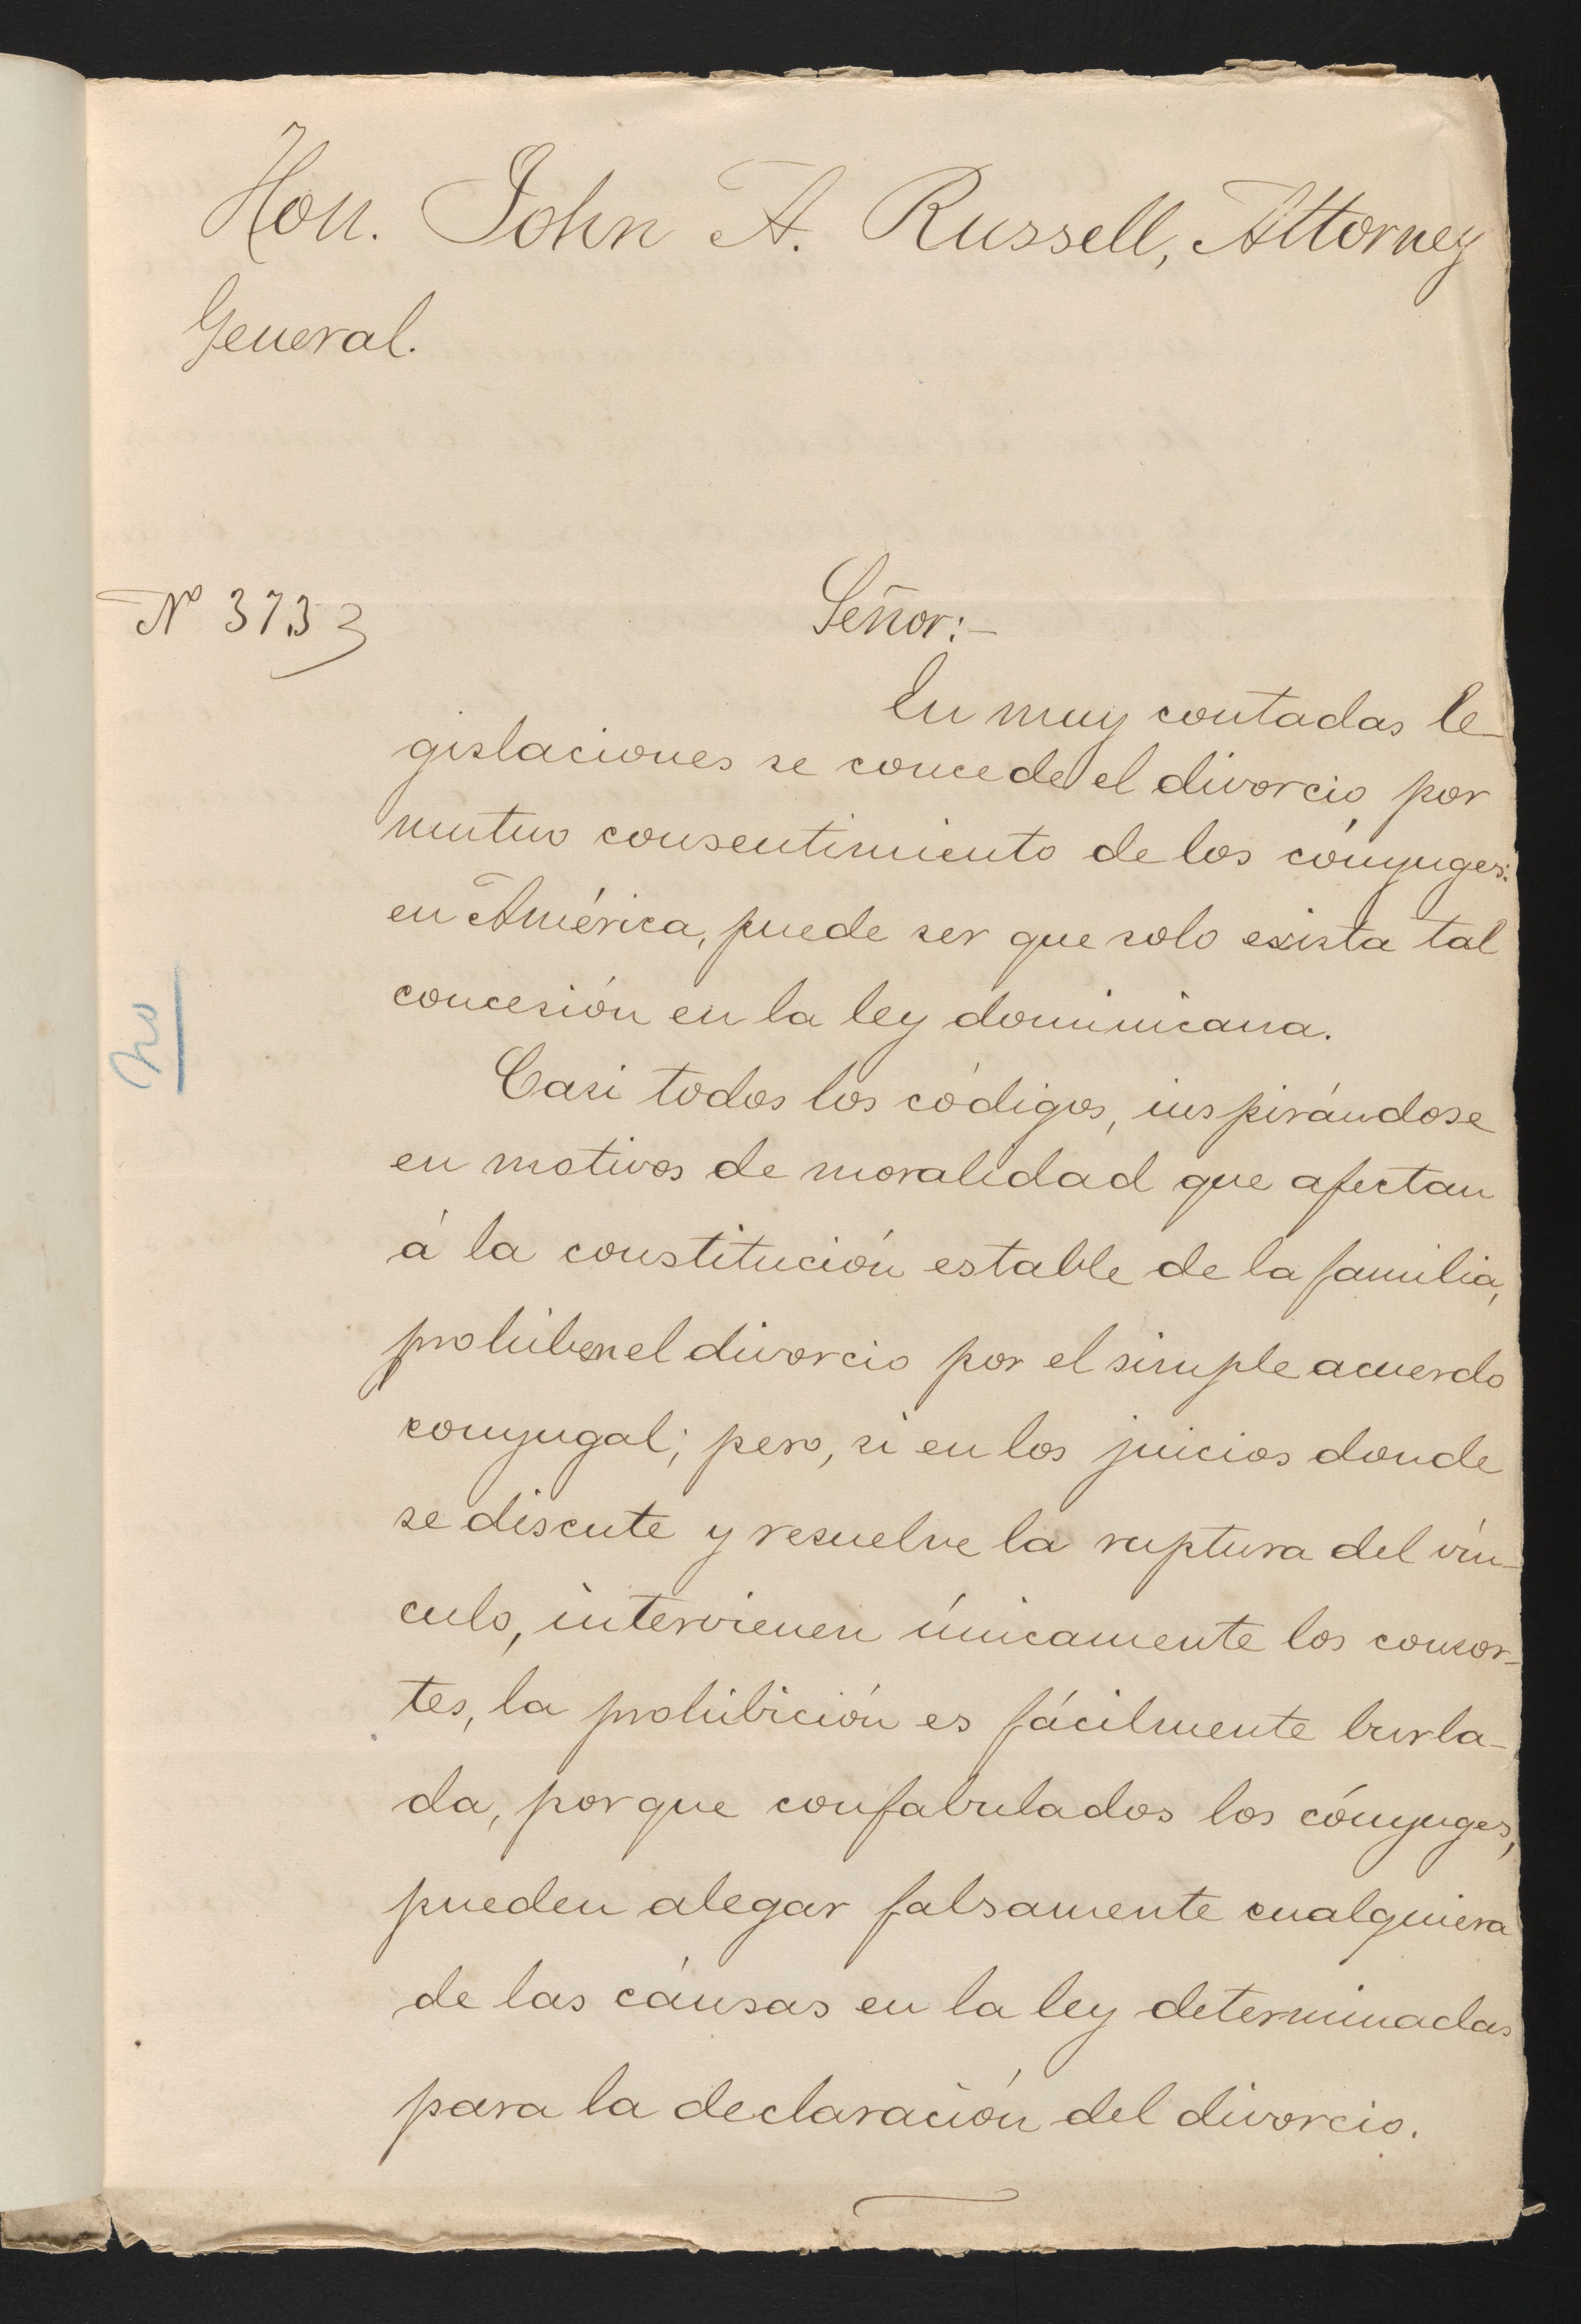 Hon. John A. Russell, Attorney
General.
Nº 3733
Señor:-
En muy contadas le-
gislaciones se concede el divorcio por
mutuo consentimiento de los cónyuges:
en América, puede ser que solo exista tal
concesión en la ley dominicana.
no
Casi todos los códigos, inspirándose
en motivos de moralidad que afectan
á la constitución estable de la familia,
prohiben el divorcio por el simple acuerdo
conyugal; pero, si en los juicios donde
se discute y resuelve la ruptura del vín-
culo, intervienen únicamente los consor-
tes, la prohibición es fácilmente burla-
da, porque confabulados los cónyuges,
pueden alegar falsamente cualquiera
de las cáusas en la ley determinadas
para la declaración del divorcio.